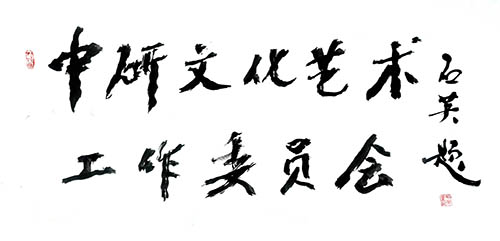 中研文化艺术
工作委员会
石英题